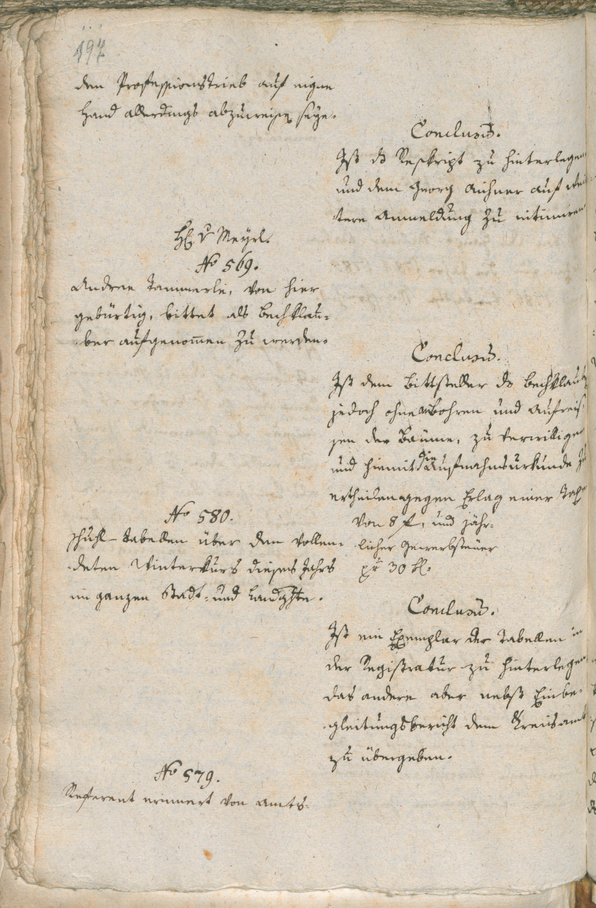 197
den Professionstrieb auf eigne
Hand allerdings abzuweisen seye.
Conclusū.
Ist ds Reskript zu hinterlegen
und dem Georg Aichner auf wei
tere Anmeldung zu intimiren
H. v Meyrl.
No 569.
Andrae Tammerle, von hier
gebürtig, bittet als Bechklau-
ber aufgenom̄en zu werden.
Conclusū.
Ist dem Bittsteller ds Bechklau
jedoch ohne Anbohren und Aufreis-
sen der Bäume, zu verwilligen
und hiemit die Aufnahmsurkunde zu
ertheilen gegen Erlag einer Tax
von 8 f, und jähr-
licher Gewerbsteuer
pr 30 kr.
No 580.
Schuhl-Tabellen über den vollen-
deten Winterkurs dieses Jahrs
im ganzen Stadt- und Landgchte.
Conclusū.
Ist ein Exemplar der Tabellen in
der Registratur zu hinterlegen
das andere aber nebst Einbe-
gleitungsbericht dem Kreisamt
zu übergeben.
No 579.
Referent erinnert von Amts